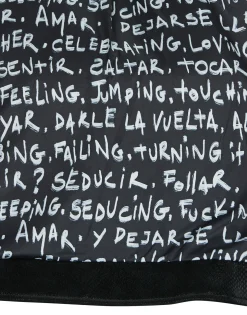 R, AMAR. Y DEJARSE
HER. CELEBRATING, LOVIN
SENTIR, SALTAR, TOCAR
FEELING, JUMPING, TOUCHIN
YAR, DARLE LA VUELTA, A
BING, FAILING, TURNING it
iR? SEDUCIR, FOLLAR,
EEPING, SEDUCING, FUCKIN
AMAR. Y DEJARSE LA